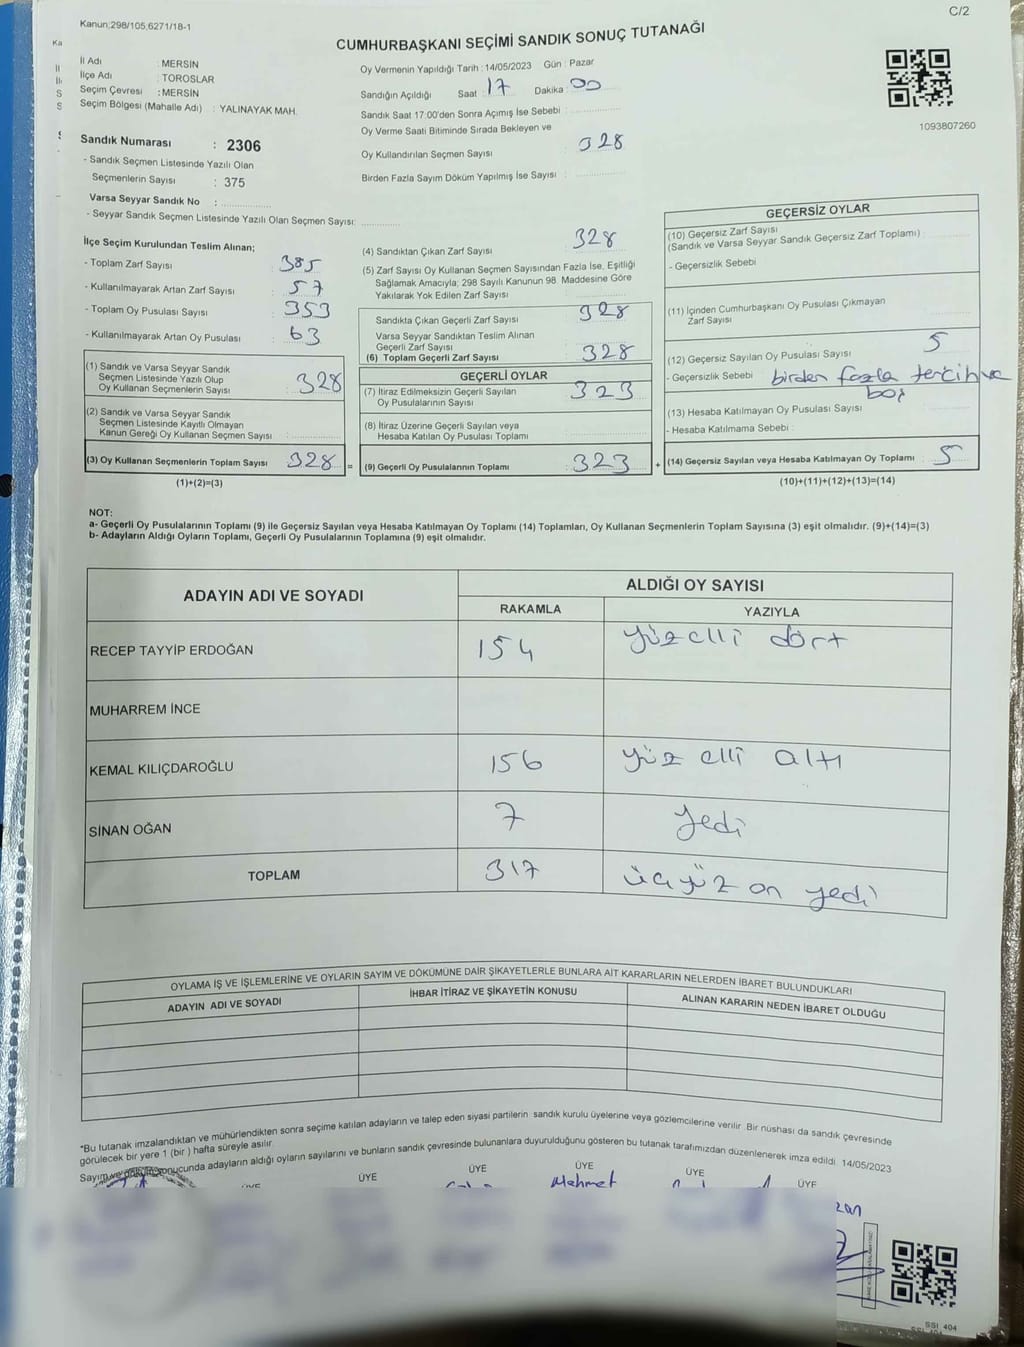 C/2
Kanun;298/105,6271/18-1
CUMHURBAŞKANI SEÇİMİ SANDIK SONUÇ TUTANAĞI
İl Adı : MERSİN
İlçe Adı : TOROSLAR
Seçim Çevresi : MERSİN
Seçim Bölgesi (Mahalle Adı) : YALINAYAK MAH.
Oy Vermenin Yapıldığı Tarih : 14/05/2023 Gün : Pazar
Sandığın Açıldığı Saat : 17 Dakika : 00
Sandık Saat 17:00'den Sonra Açımış İse Sebebi :
Oy Verme Saati Bitiminde Sırada Bekleyen ve
Oy Kullandırılan Seçmen Sayısı : 328
Birden Fazla Sayım Döküm Yapılmış İse Sayısı :
1093807260
Sandık Numarası : 2306
- Sandık Seçmen Listesinde Yazılı Olan
Seçmenlerin Sayısı : 375
Varsa Seyyar Sandık No :
- Seyyar Sandık Seçmen Listesinde Yazılı Olan Seçmen Sayısı:
İlçe Seçim Kurulundan Teslim Alınan;
- Toplam Zarf Sayısı : 385
- Kullanılmayarak Artan Zarf Sayısı : 57
- Toplam Oy Pusulası Sayısı : 353
- Kullanılmayarak Artan Oy Pusulası : 63
(1) Sandık ve Varsa Seyyar Sandık
Seçmen Listesinde Yazılı Olup
Oy Kullanan Seçmenlerin Sayısı : 328
(2) Sandık ve Varsa Seyyar Sandık
Seçmen Listesinde Kayıtlı Olmayan
Kanun Gereği Oy Kullanan Seçmen Sayısı :
(3) Oy Kullanan Seçmenlerin Toplam Sayısı : 328 =
(1)+(2)=(3)
(4) Sandıktan Çıkan Zarf Sayısı : 328
(5) Zarf Sayısı Oy Kullanan Seçmen Sayısından Fazla İse, Eşitliği
Sağlamak Amacıyla; 298 Sayılı Kanunun 98. Maddesine Göre
Yakılarak Yok Edilen Zarf Sayısı :
Sandıkta Çıkan Geçerli Zarf Sayısı : 328
Varsa Seyyar Sandıktan Teslim Alınan
Geçerli Zarf Sayısı :
(6) Toplam Geçerli Zarf Sayısı : 328
GEÇERLİ OYLAR
(7) İtiraz Edilmeksizin Geçerli Sayılan
Oy Pusulalarının Sayısı : 323
(8) İtiraz Üzerine Geçerli Sayılan veya
Hesaba Katılan Oy Pusulası Toplamı :
(9) Geçerli Oy Pusulalarının Toplamı : 323 +
GEÇERSİZ OYLAR
(10) Geçersiz Zarf Sayısı
(Sandık ve Varsa Seyyar Sandık Geçersiz Zarf Toplamı) :
- Geçersizlik Sebebi :
(11) İçinden Cumhurbaşkanı Oy Pusulası Çıkmayan
Zarf Sayısı :
(12) Geçersiz Sayılan Oy Pusulası Sayısı : 5
- Geçersizlik Sebebi : birden fazla tercih ve
boş
(13) Hesaba Katılmayan Oy Pusulası Sayısı :
- Hesaba Katılmama Sebebi :
(14) Geçersiz Sayılan veya Hesaba Katılmayan Oy Toplamı : 5
(10)+(11)+(12)+(13)=(14)
NOT:
a- Geçerli Oy Pusulalarının Toplamı (9) ile Geçersiz Sayılan veya Hesaba Katılmayan Oy Toplamı (14) Toplamları, Oy Kullanan Seçmenlerin Toplam Sayısına (3) eşit olmalıdır. (9)+(14)=(3)
b- Adayların Aldığı Oyların Toplamı, Geçerli Oy Pusulalarının Toplamına (9) eşit olmalıdır.
ADAYIN ADI VE SOYADI
ALDIĞI OY SAYISI
RAKAMLA YAZIYLA
RECEP TAYYİP ERDOĞAN 154 yüzelli dört
MUHARREM İNCE
KEMAL KILIÇDAROĞLU 156 yüz elli altı
SİNAN OĞAN 7 yedi
TOPLAM 317 üçyüz on yedi
OYLAMA İŞ VE İŞLEMLERİNE VE OYLARIN SAYIM VE DÖKÜMÜNE DAİR ŞİKAYETLERLE BUNLARA AİT KARARLARIN NELERDEN İBARET BULUNDUKLARI
ADAYIN ADI VE SOYADI İHBAR İTİRAZ VE ŞİKAYETİN KONUSU ALINAN KARARIN NEDEN İBARET OLDUĞU
*Bu tutanak imzalandıktan ve mühürlendikten sonra seçime katılan adayların ve talep eden siyasi partilerin sandık kurulu üyelerine veya gözlemcilerine verilir. Bir nüshası da sandık çevresinde
görülecek bir yere 1 (bir) hafta süreyle asılır.
Sayım ve döküm sonucunda adayların aldığı oyların sayılarını ve bunların sandık çevresinde bulunanlara duyurulduğunu gösteren bu tutanak tarafımızdan düzenlenerek imza edildi. 14/05/2023
ÜYE ÜYE ÜYE ÜYE ÜYE ÜYE
Mahmet
SSI 404